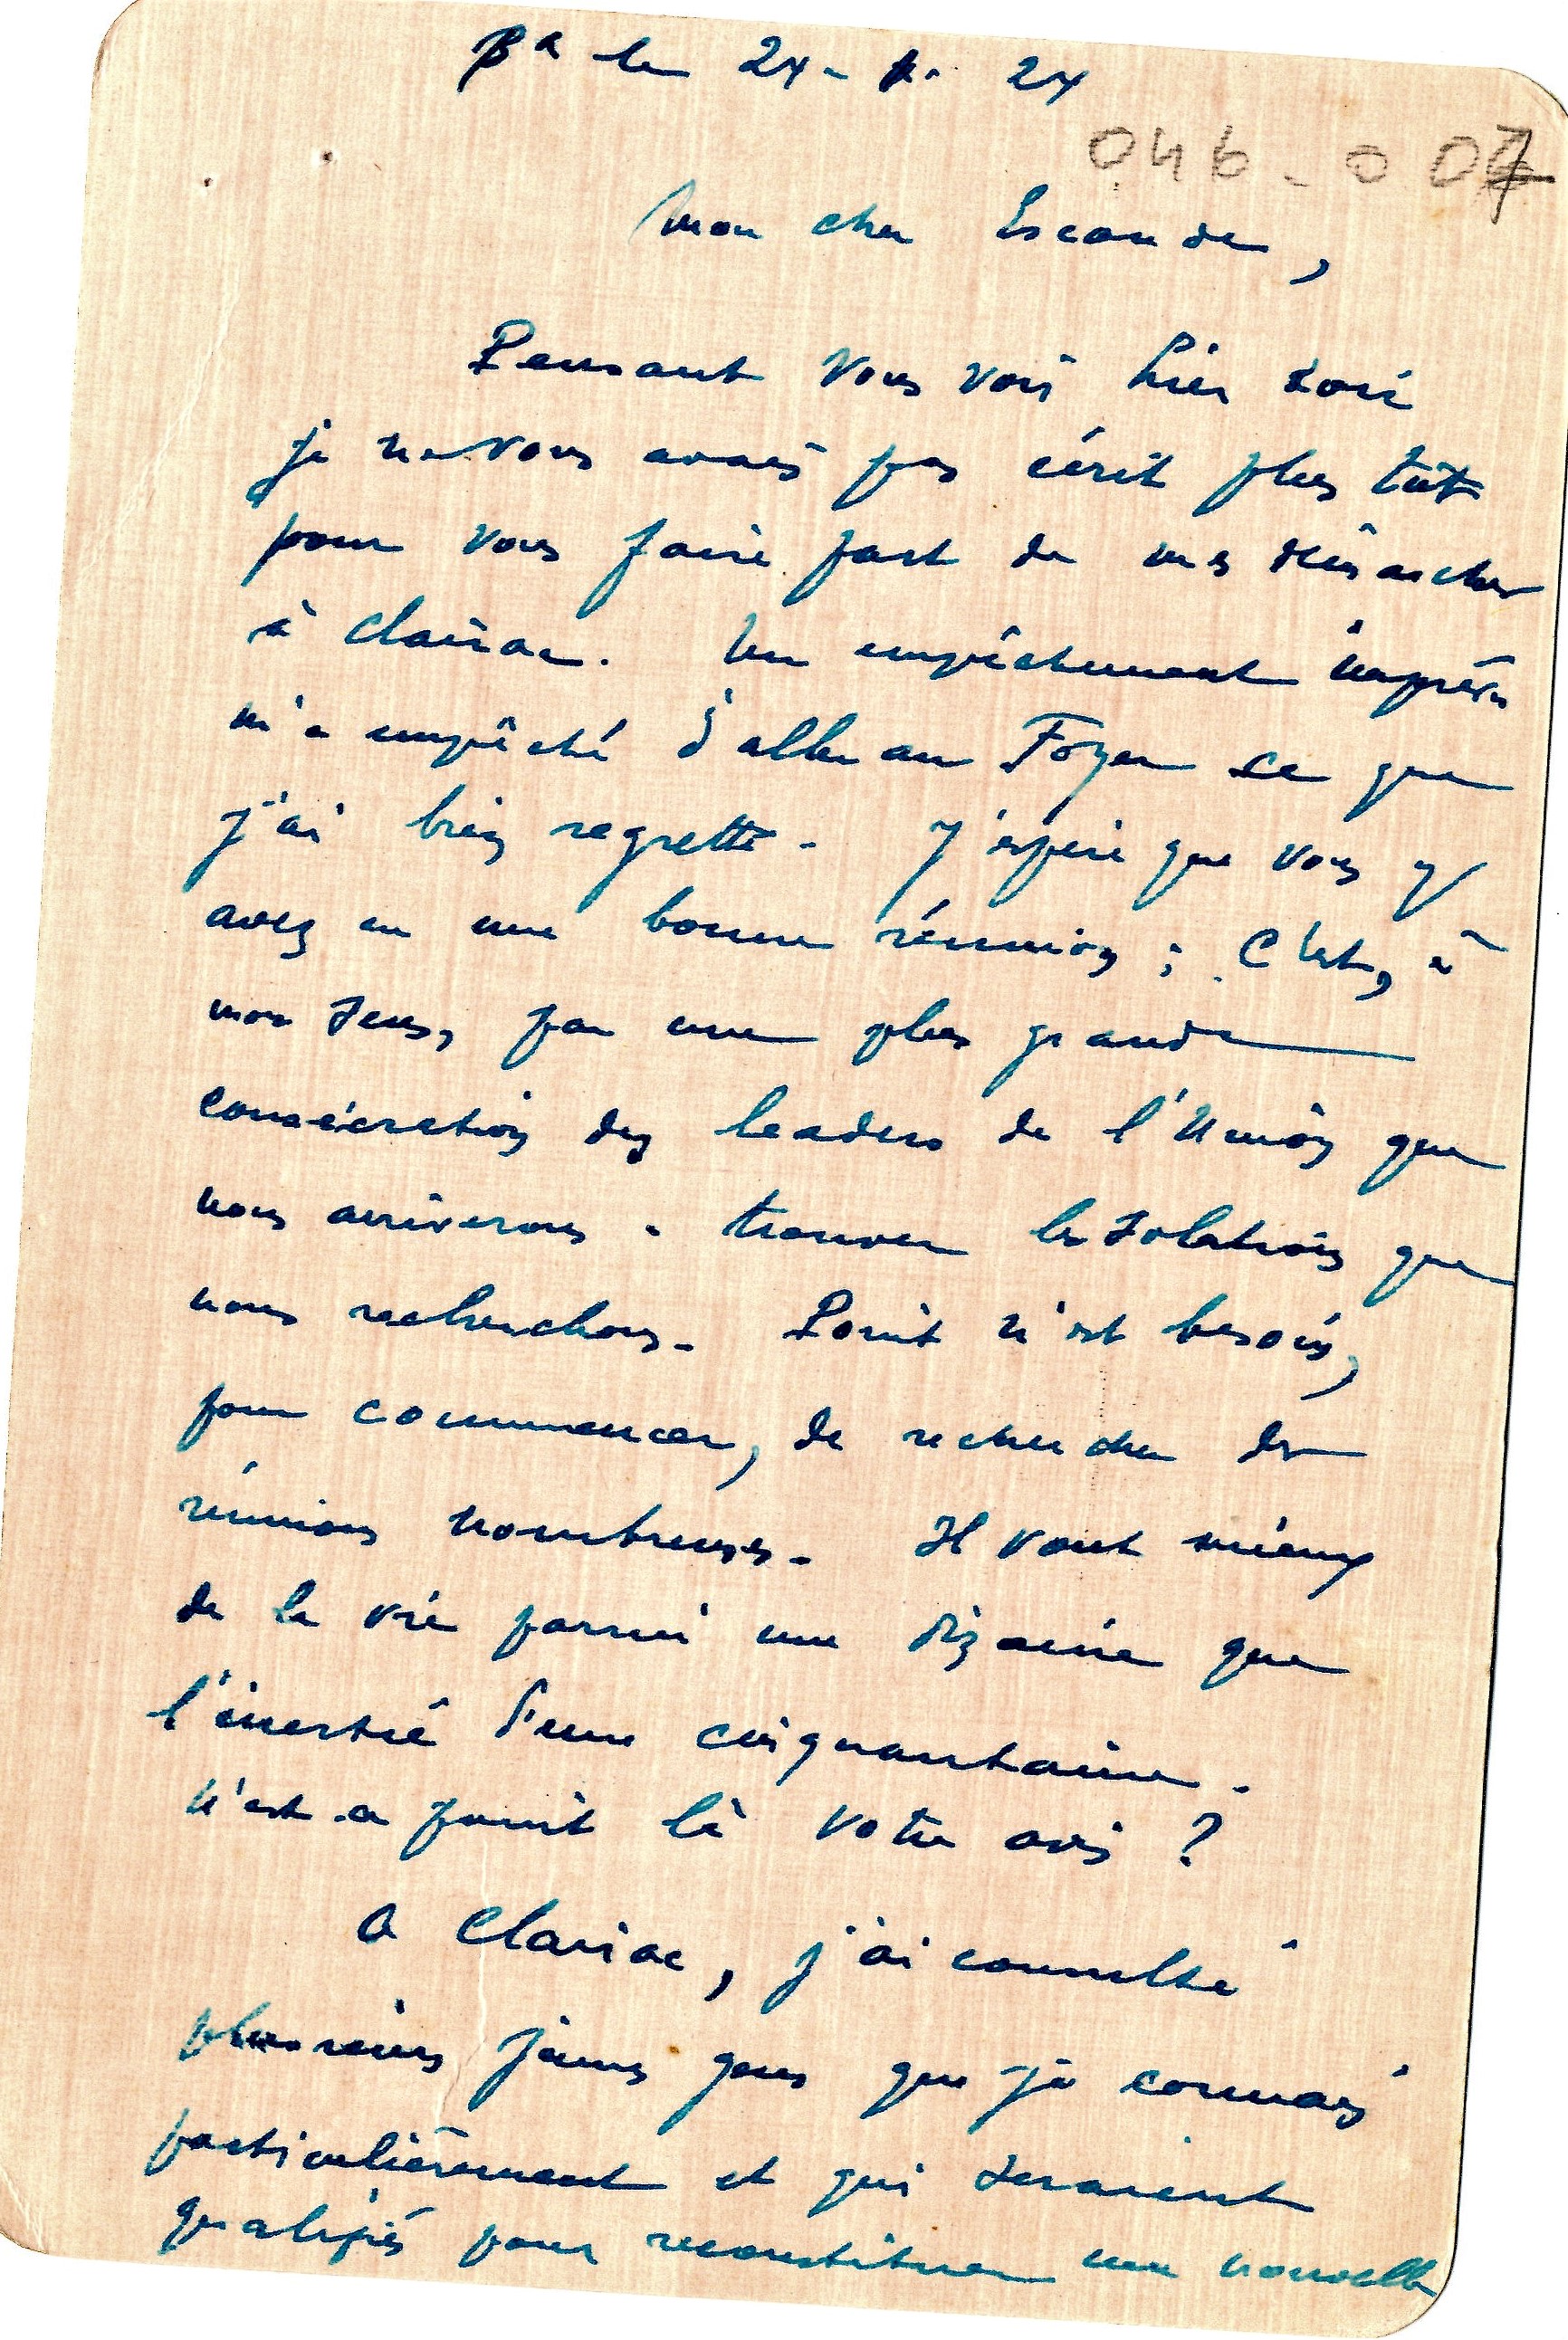 Bx le 24 - 1. 24
046 - 007
Mon cher Escande,
Pensant vous voir hier soir
je ne vous avais pas écrit plus tôt
pour vous faire part de mes démarches
à Clairac. Un empêchement imprévu
m'a empêché d'aller au Foyer ce que
j'ai bien regretté - J'espère que vous y
avez eu une bonne réunion ; C'est, à
mon sens, par une plus grande
consécration des leaders de l'Union que
nous arriverons à trouver les solutions que
nous recherchons - Point n'est besoin,
pour commencer, de rechercher des
réunions nombreuses - Il vaut mieux
de la vie parmi une dizaine que
l'inertie d'une cinquantaine.
N'est-ce point là votre avis ?
A Clairac, j'ai consulté
plusieurs jeunes gens que je connais
particulièrement et qui seraient
qualifiés pour reconstituer une nouvelle